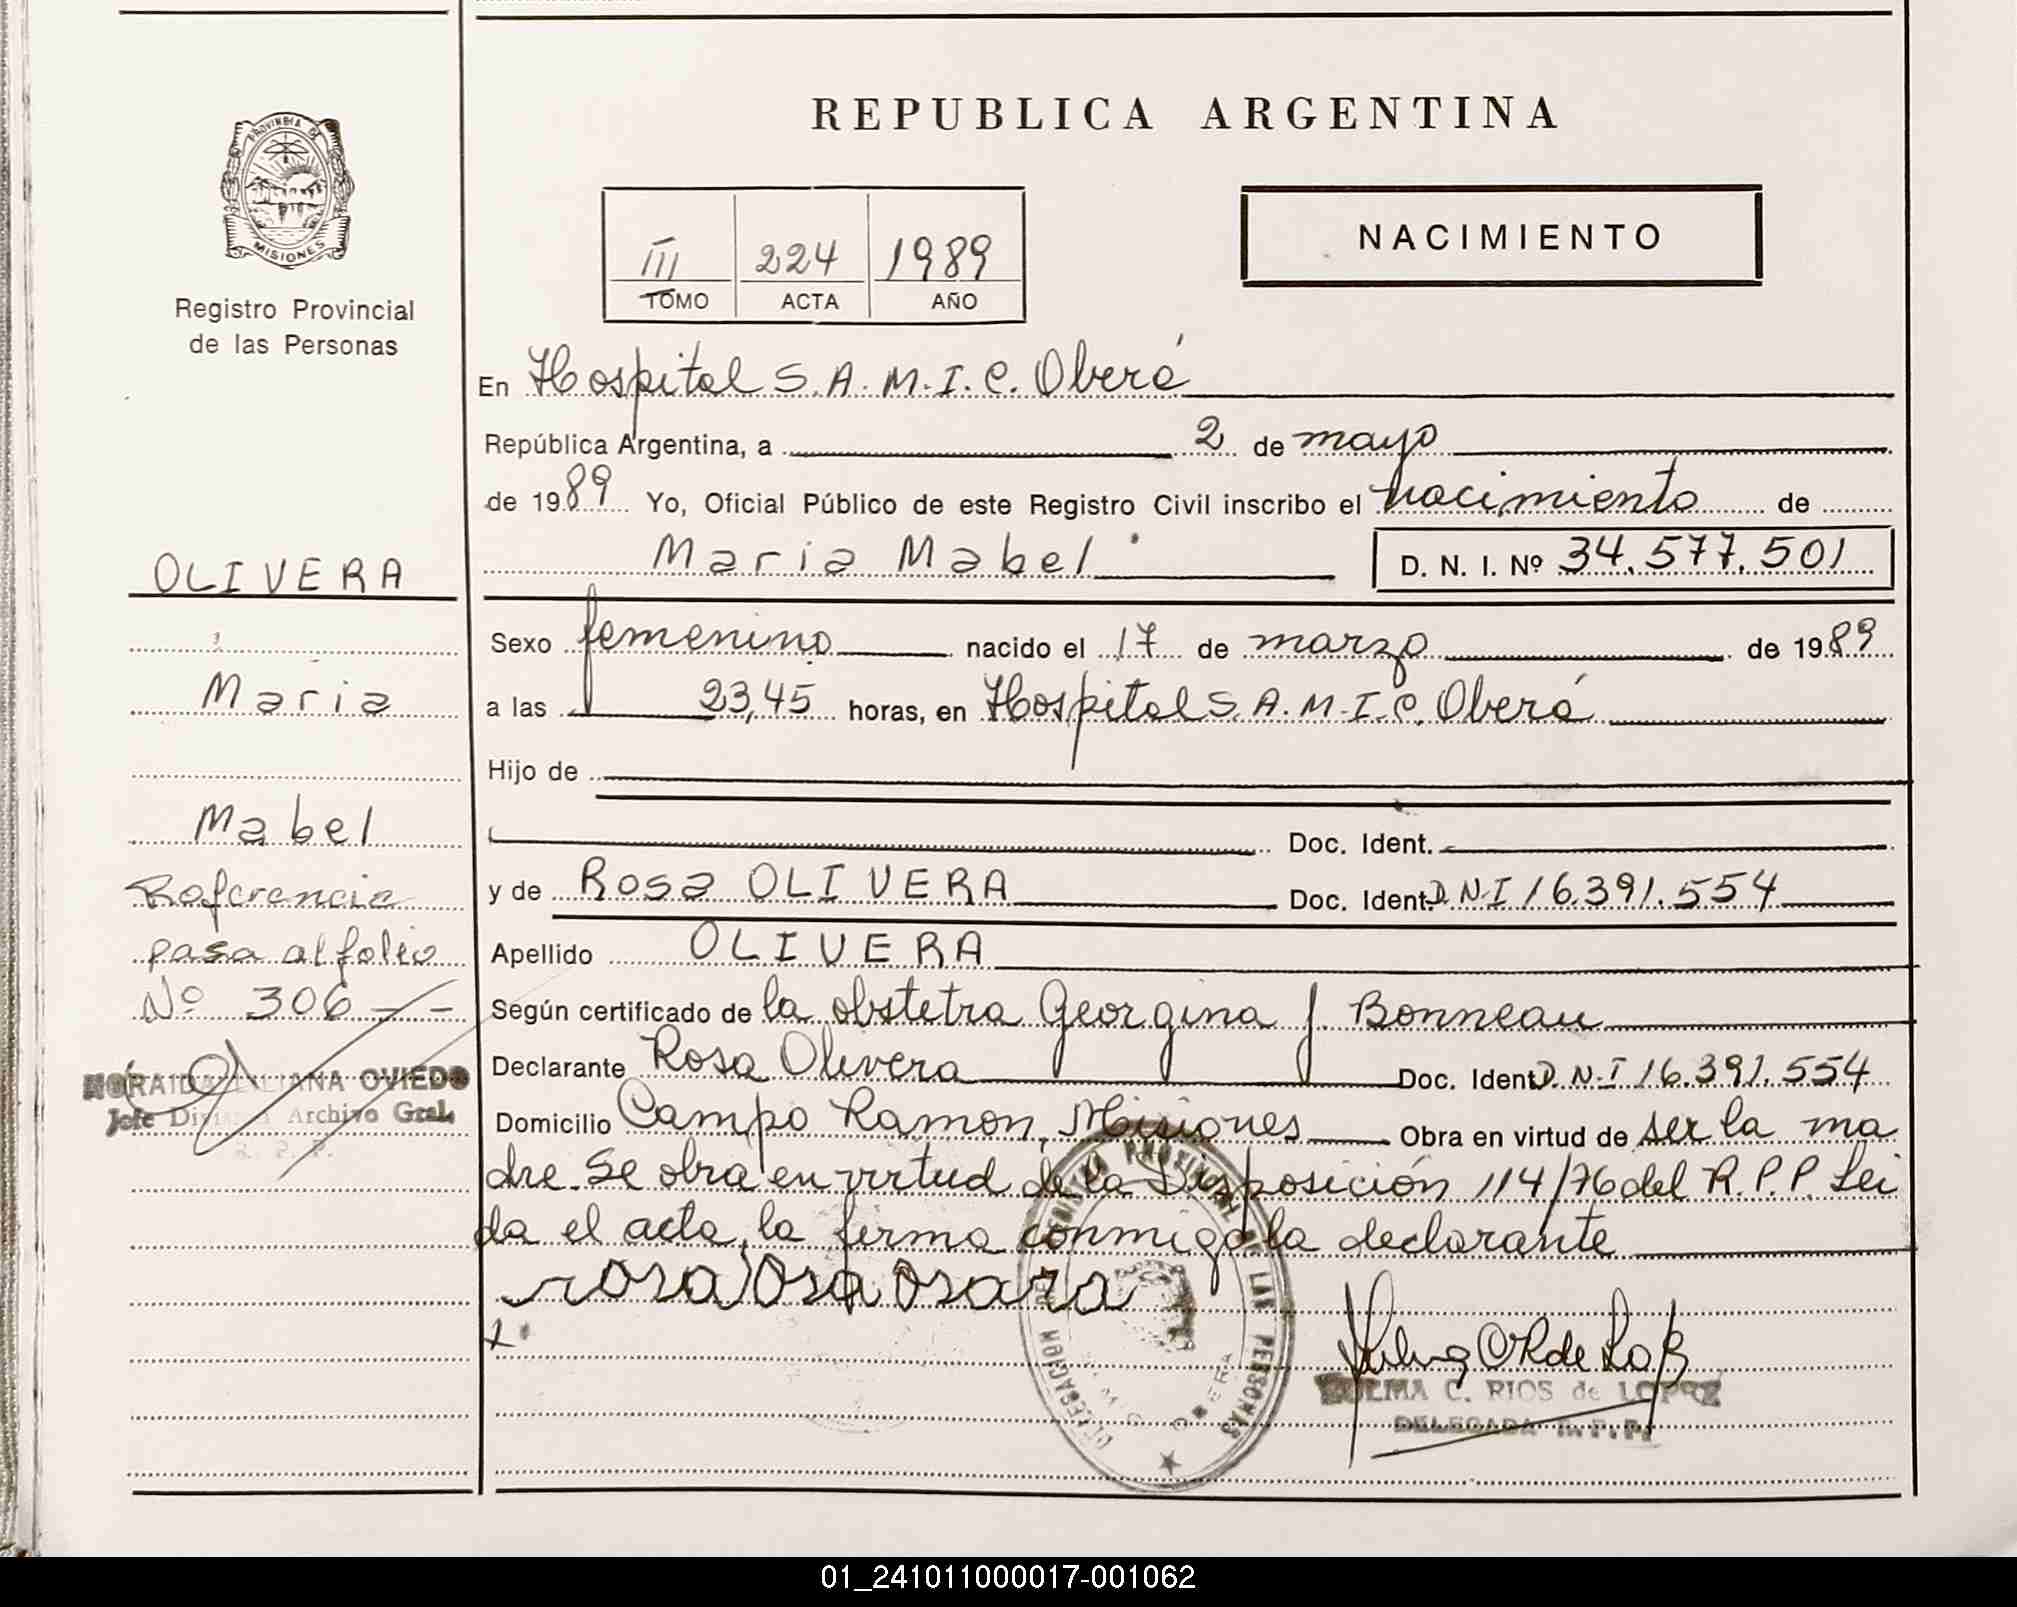 REPUBLICA ARGENTINA
PROVINCIA DE
MISIONES
Registro Provincial
de las Personas
III 224 1989
TOMO ACTA AÑO
NACIMIENTO
En Hospital S.A.M.I.C. Oberá
República Argentina, a 2 de mayo
de 1989 Yo, Oficial Público de este Registro Civil inscribo el nacimiento de
Maria Mabel D. N. I. Nº 34.577.501
Sexo femenino nacido el 17 de marzo de 1989
a las 23,45 horas, en Hospital S.A.M.I.C. Oberá
Hijo de
Doc. Ident.
y de Rosa OLIVERA Doc. Ident. D.N.I 16.391.554
Apellido OLIVERA
Según certificado de la obstetra Georgina J. Bonneau
Declarante Rosa Olivera Doc. Ident. D.N.I 16.391.554
Domicilio Campo Ramon, Misiones Obra en virtud de ser la ma
dre. Se obra en virtud de la Disposición 114/76 del R.P.P. Lei
da el acta, la firma conmigo la declarante
OLIVERA
Maria
Mabel
Referencia
pasa al folio
Nº 306
LILIANA OVIEDO
Jefe División Archivo Gral.
R. P. P.
PROVINCIAL DE LAS PERSONAS
DELEGACION
ZULMA C. RIOS de LOPEZ
DELEGADA R. P. P.
01_241011000017-001062